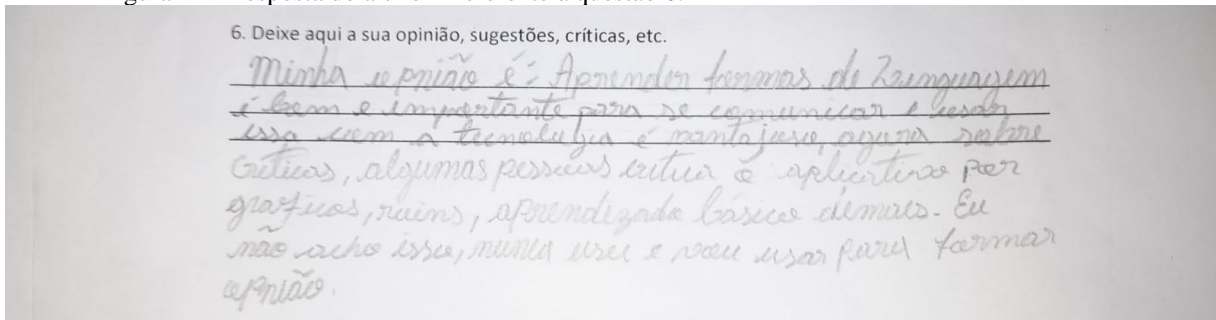 6. Deixe aqui a sua opinião, sugestões, críticas, etc.
Minha opinião é: Aprender formas de Linguagem
é bom e importante para se comunicar e usar
isso com a tecnologia é vantajoso, agora sobre
Criticas, algumas pessoas critica o aplicativo por
graficos, ruins, aprendizado básico demais. Eu
não acho isso, nunca usei e vou usar para formar
opinião.